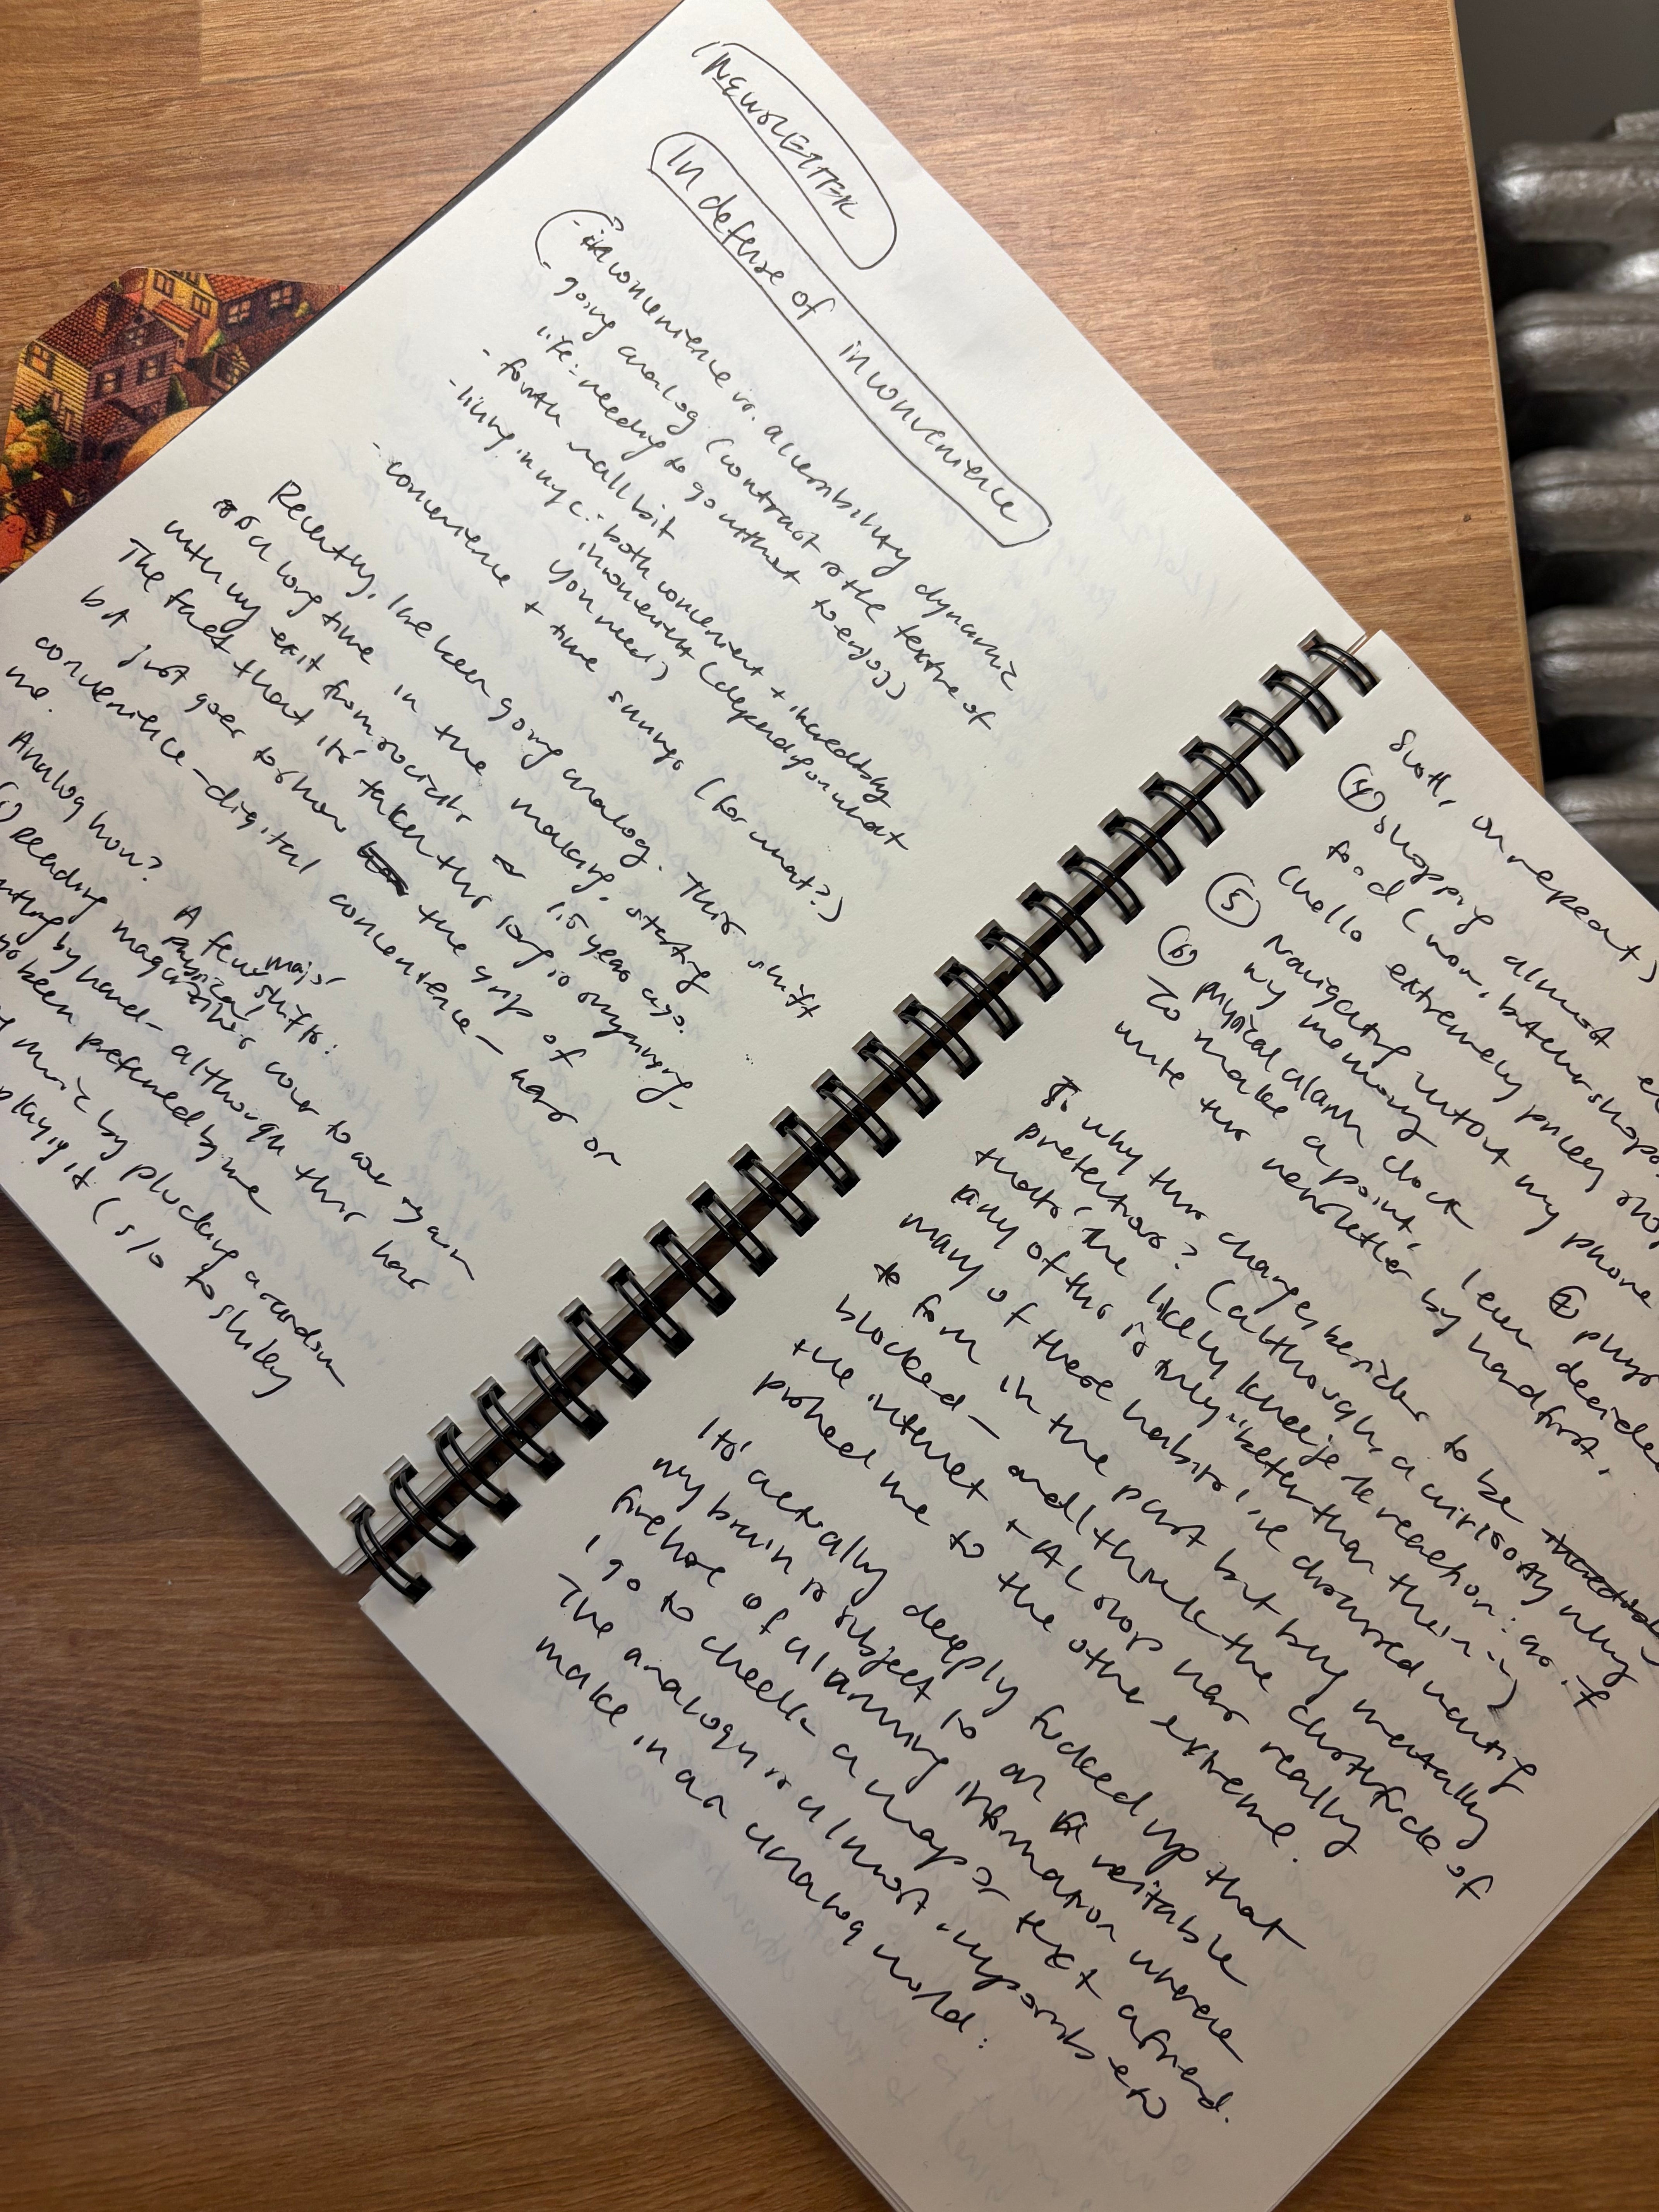 NEWSLETTER
In defense of inconvenience
- inconvenience vs. accessibility dynamic
- going analog (contrast to the texture of
life: needing to go without to enjoy)
- fourth wall bit
- living in nyc: both convenient + incredibly
inconvenient (depending on what
you need)
- convenience + time savings (for what?)
Recently, I've been going analog. This shift
is a long time in the making, starting
with my exit from socials 1.5 years ago.
The fact that it's taken this long is ongoing
bt just goes to show the grip of
convenience - digital convenience - has on
me.
Analog how? A few major shifts:
(1) Reading physical magazines cover to cover again
writing by hand - although this has
been preferred by me
music by plucking a cord on
playing it (s/o to Shirley
Swth, on repeat)
(4) shopping almost
food (wow, butcher shops
(hello extremely pricey
(5) Navigating without my phone
my memory
(6) physical alarm clock (7) phys
To make a point, I even decided
write this newsletter by hand first.
Why this change besides to be
pretentious? (although, a curiosity why
that's the likely kneejerk reaction: as if
any of this is truly "better than their")
many of these habits, I've dreamed wanting
to form in the past but by mentally
blocked - and I think the clusterfuck of
the internet + AI slop has really
pushed me to the other extreme.
It's actually deeply fucked up that
my brain is subject to a veritable
firehose of alarming information where
I go to check a map or text a friend.
The analogy is almost impossible to
make in an analog world: